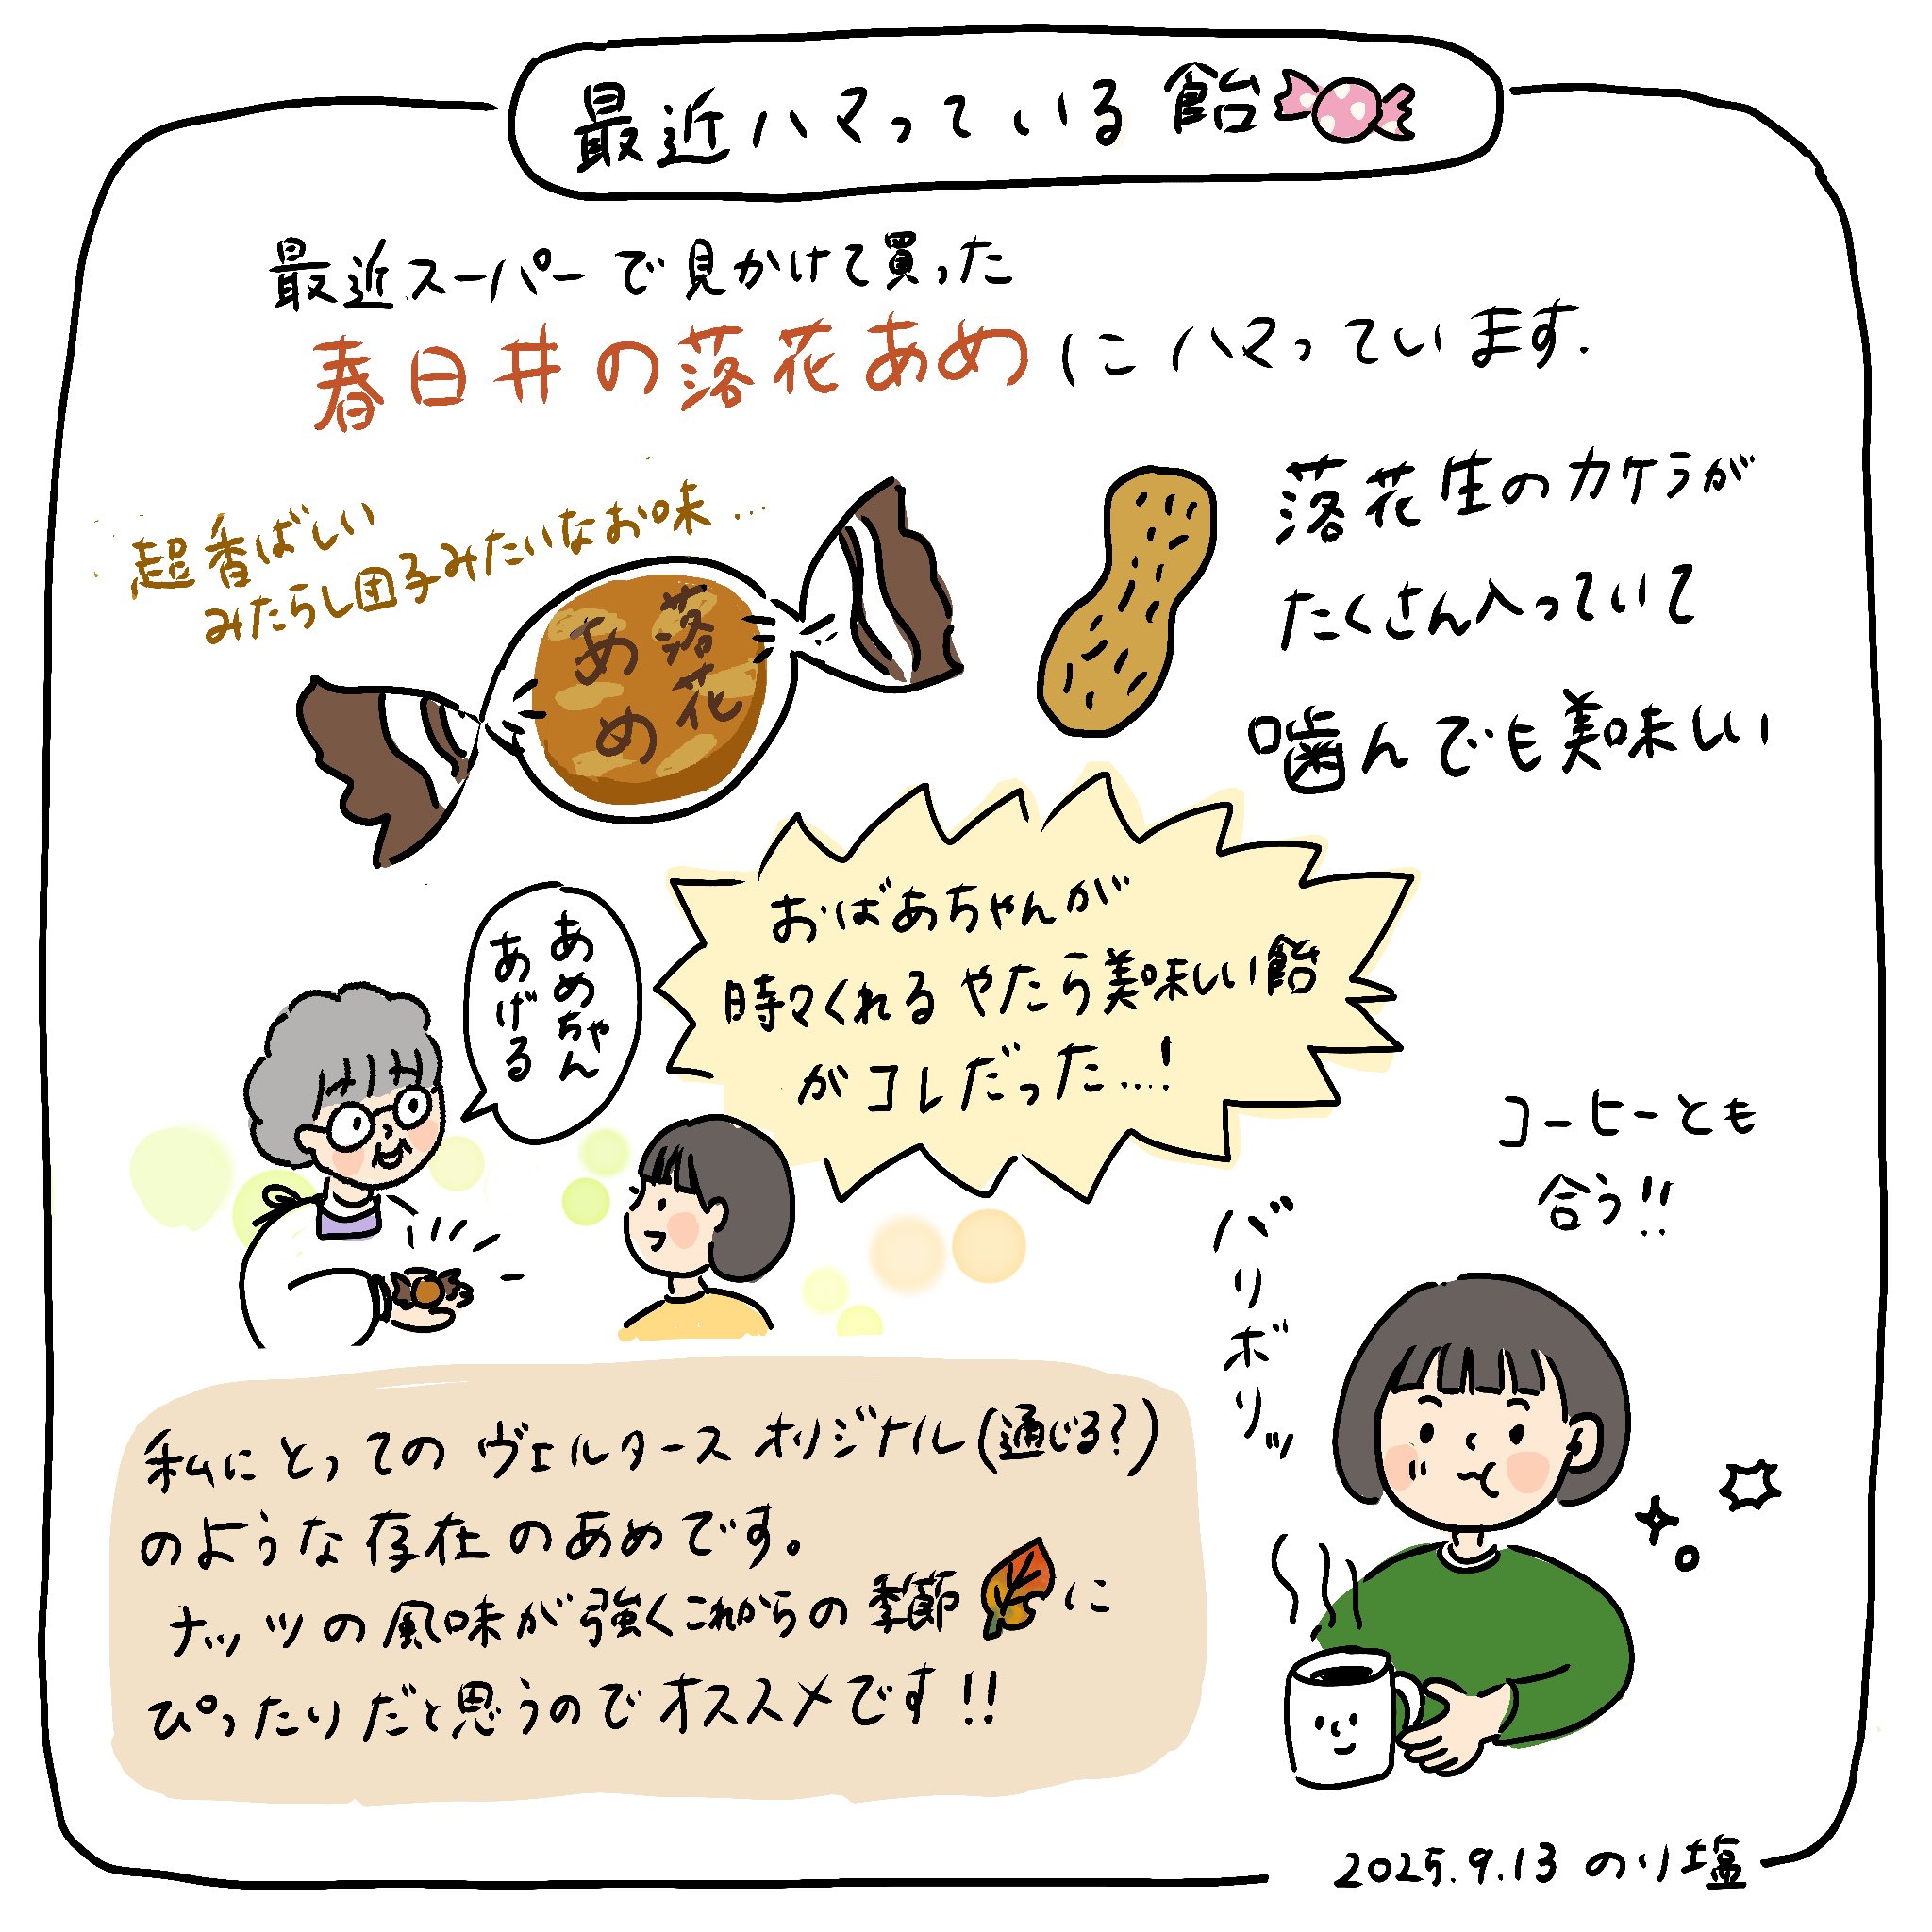 最近ハマっている飴
最近スーパーで見かけて買った
春日井の落花あめにハマっています.
超香ばしい
みたらし団子みたいなお味…
落花
あめ
落花生のカケラが
たくさん入っていて
噛んでも美味しい
あめちゃん
あげる
おばあちゃんが
時々くれるやたら美味しい飴
がコレだった…!
コーヒーとも
合う!!
バリボリッ
私にとってのヴェルタースオリジナル(通じる?)
のような存在のあめです。
ナッツの風味が強くこれからの季節に
ぴったりだと思うのでオススメです!!
2025.9.13 のり塩